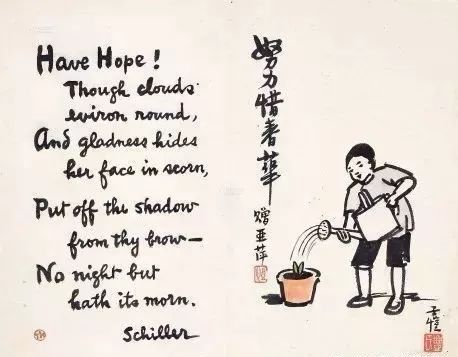 Have Hope!
Though clouds
eviron round,
And gladness hides
her face in scorn,
Put off the shadow
from thy brow—
No night but
hath its morn.
Schiller
努力惜春華
贈亞萍
子愷